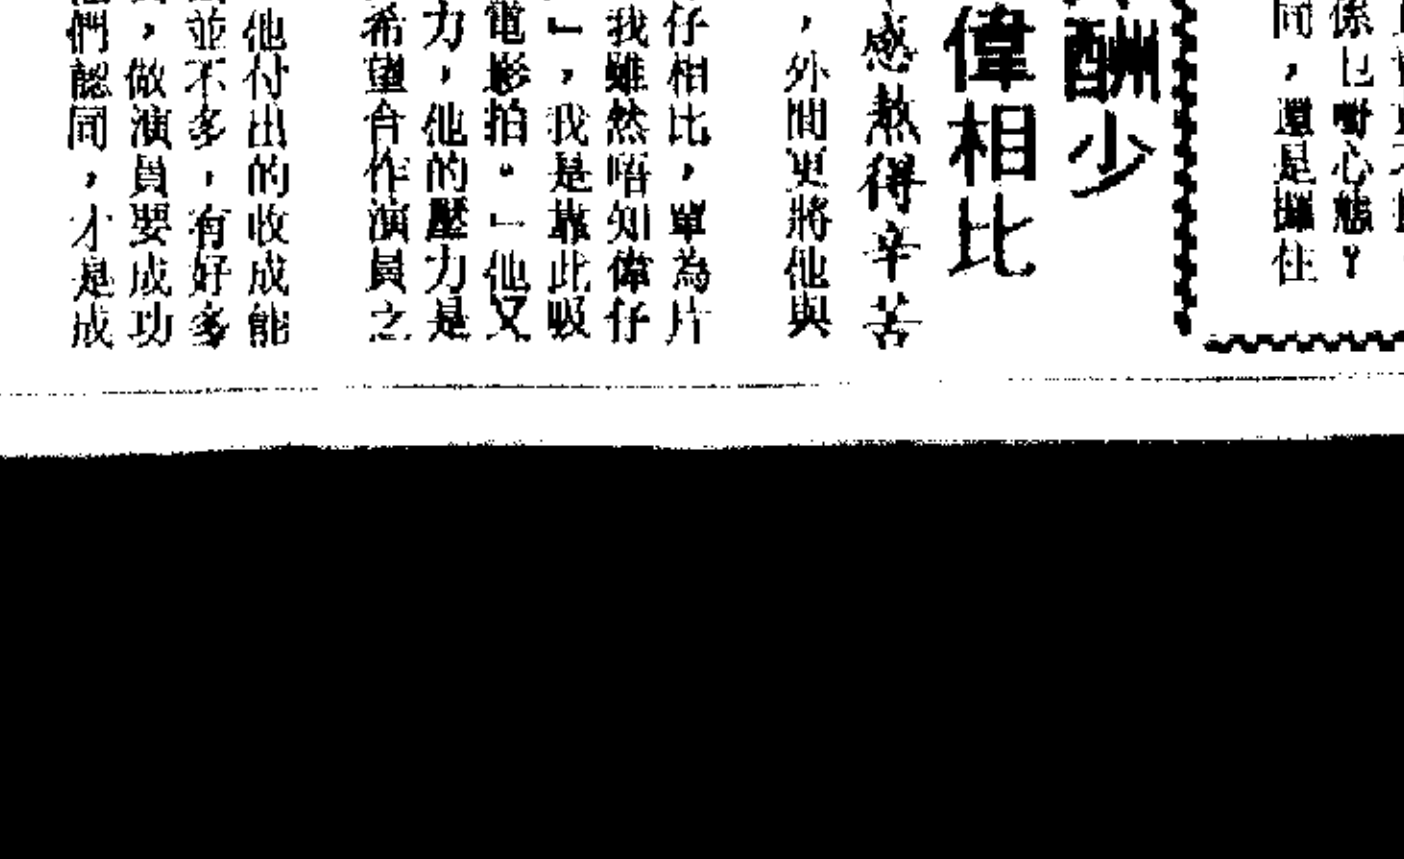 係乜嘢心態?
同,還是攞住
酬少
偉相比
感熬得辛苦
,外間更將他與
仔相比,單為片
我雖然唔知偉仔
」,我是靠此吸
電影拍。」他又
力,他的壓力是
希望合作演員之
他付出的收成能
並不多,有好多
,做演員要成功
們認同,才是成